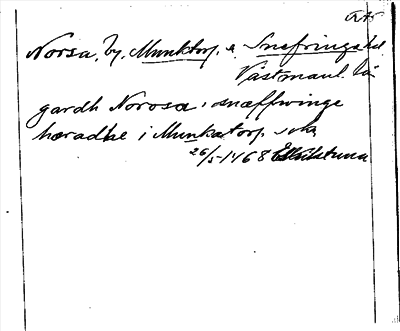 Norsa, by, Munktorp, s, Snefringe hd
Västmanl. län
gardh Norosa i snæffwinge
hæradhe i Munkatorp, sokn
26/5 1468 Eskilstuna